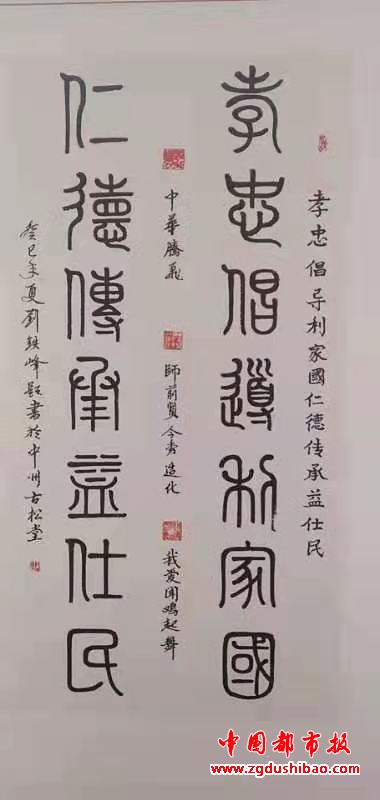 孝忠倡导利家國仁德传承益仕民
孝忠倡導利家國
中華騰飛
師前賢今秀造化
我爱聞鸡起舞
仁德傳承益仕民
癸巳年夏劉鉄峰题書於中州古松堂
中国都市报
www.zgdushibao.com